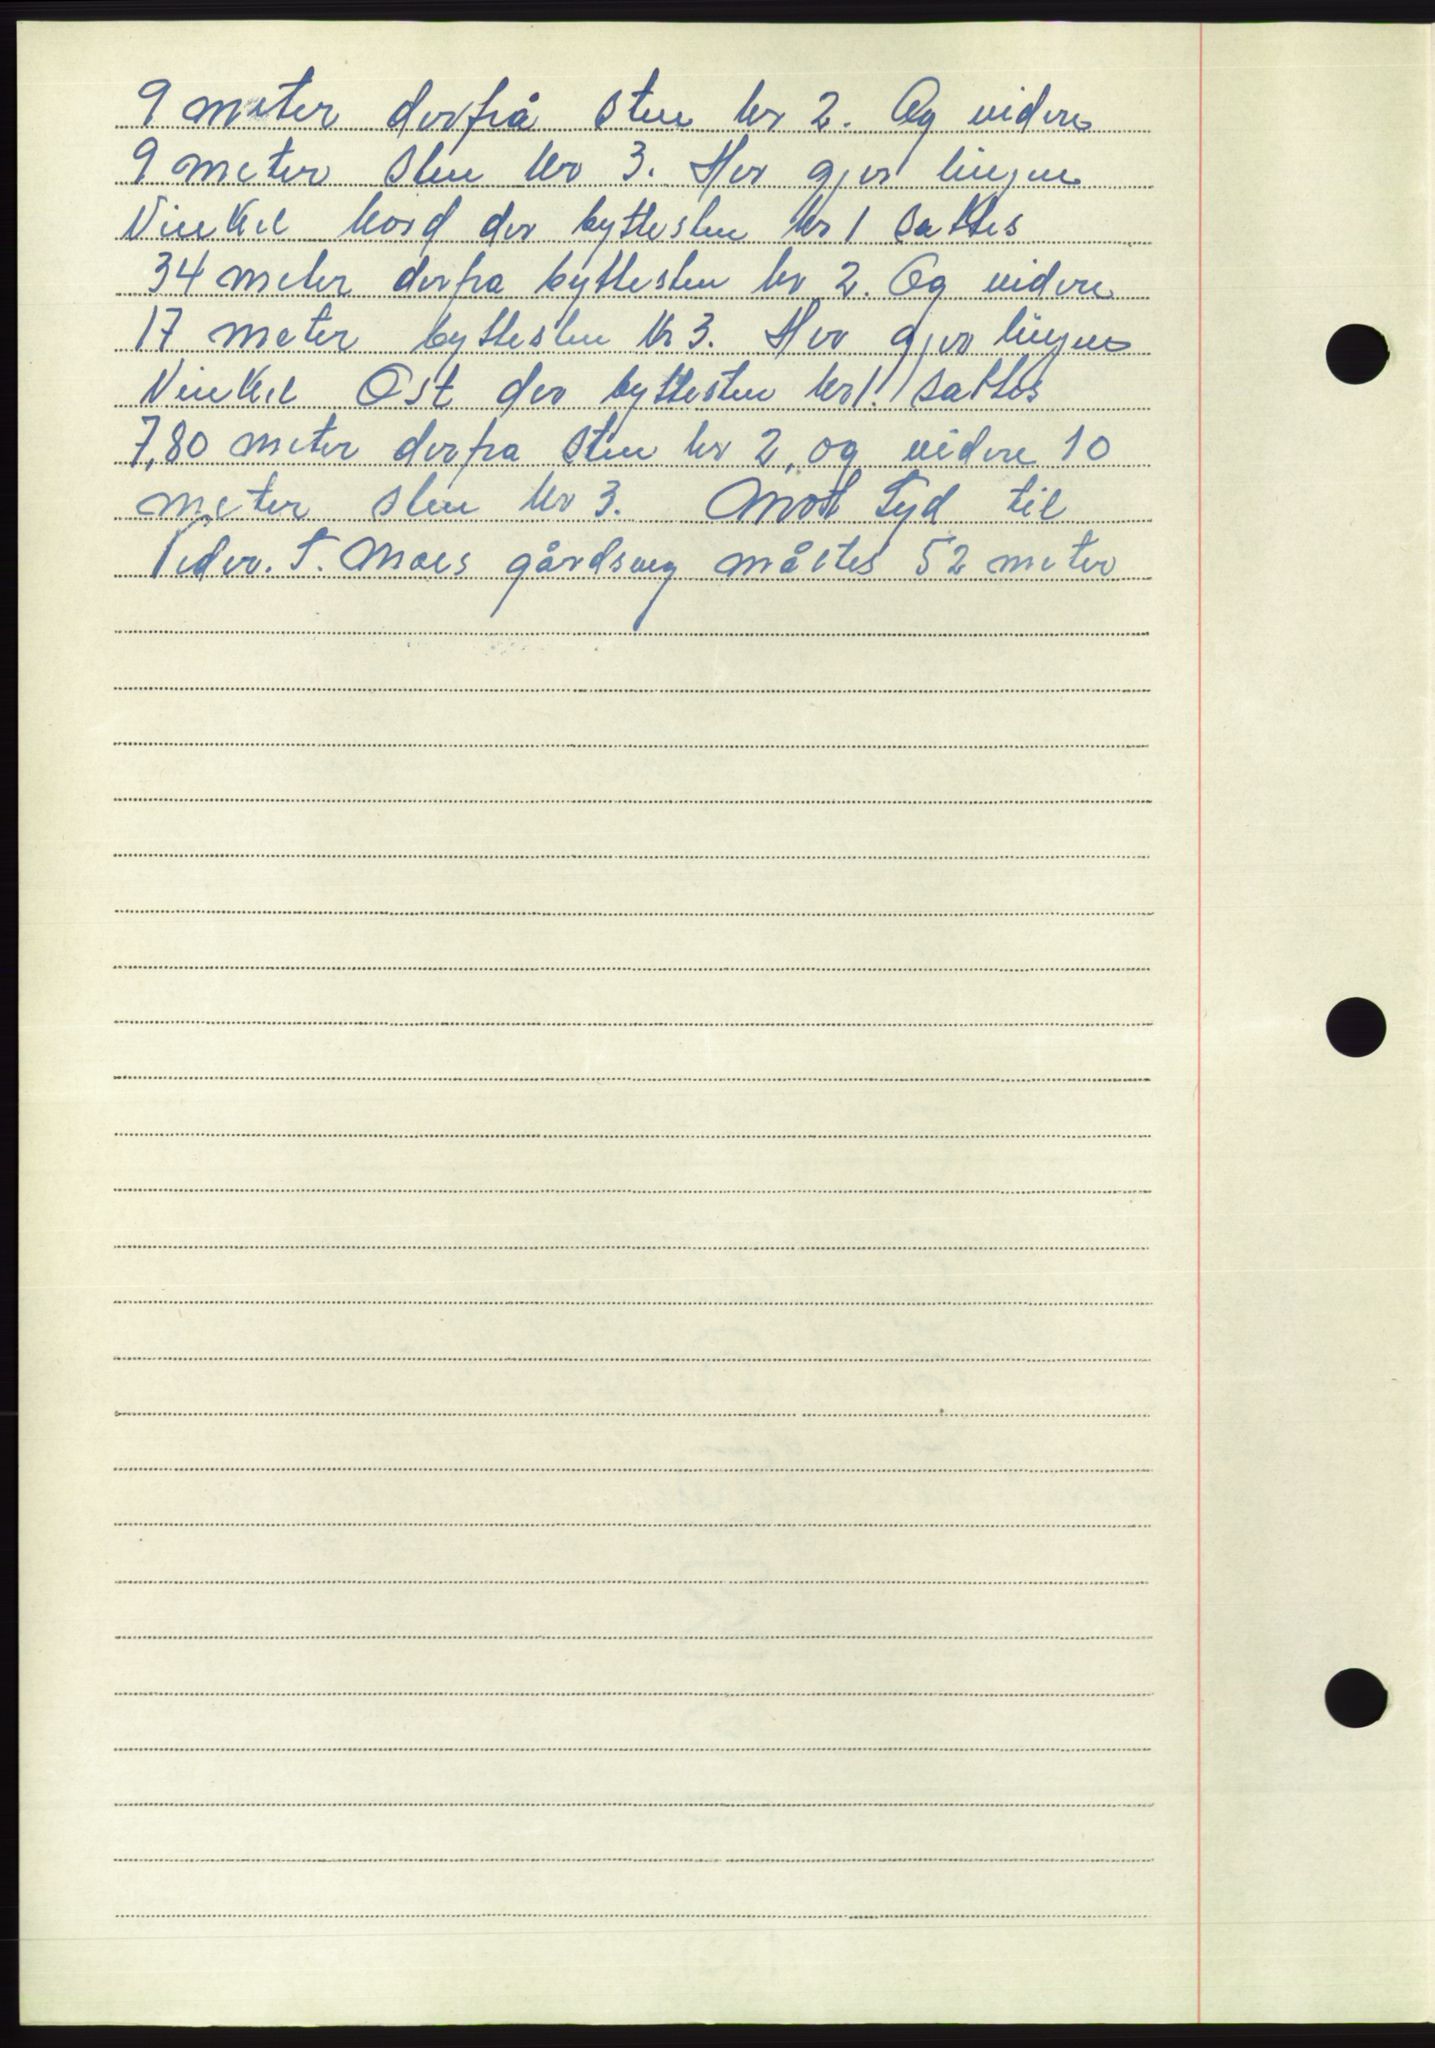 9 meter derfrå sten nr 2. Og videre
9 meter sten nr 3. Her gjer linjen
Vinkel Nord der byttesten nr 1 sattes
34 meter derfra byttesten nr 2. Og videre
17 meter byttesten nr 3. Her gjer linjen
Vinkel Ost der byttesten nr 1. sattes
7,80 meter derfra sten nr 2, og videre 10
meter sten nr 3. Mot Syd til
Peder. T. Moes gårdsveg måltes 52 meter